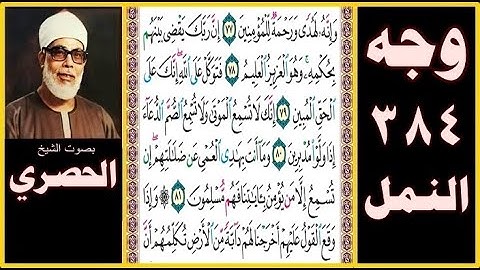 وجه
٣٨٤
النمل
وَإِنَّهُۥ لَهُدًى وَرَحْمَةٌ لِّلْمُؤْمِنِينَ ٧٧ إِنَّ رَبَّكَ يَقْضِى بَيْنَهُم
بِحُكْمِهِۦ وَهُوَ ٱلْعَزِيزُ ٱلْعَلِيمُ ٧٨ فَتَوَكَّلْ عَلَى ٱللَّهِ إِنَّكَ عَلَى
ٱلْحَقِّ ٱلْمُبِينِ ٧٩ إِنَّكَ لَا تُسْمِعُ ٱلْمَوْتَىٰ وَلَا تُسْمِعُ ٱلصُّمَّ ٱلدُّعَآءَ
إِذَا وَلَّوْا۟ مُدْبِرِينَ ٨٠ وَمَآ أَنتَ بِهَٰدِى ٱلْعُمْىِ عَن ضَلَٰلَتِهِمْ إِن
تُسْمِعُ إِلَّا مَن يُؤْمِنُ بِـَٔايَٰتِنَا فَهُم مُّسْلِمُونَ ٨١ ۞ وَإِذَا
وَقَعَ ٱلْقَوْلُ عَلَيْهِمْ أَخْرَجْنَا لَهُمْ دَآبَّةً مِّنَ ٱلْأَرْضِ تُكَلِّمُهُمْ أَنَّ
بصوت الشيخ
الحصري